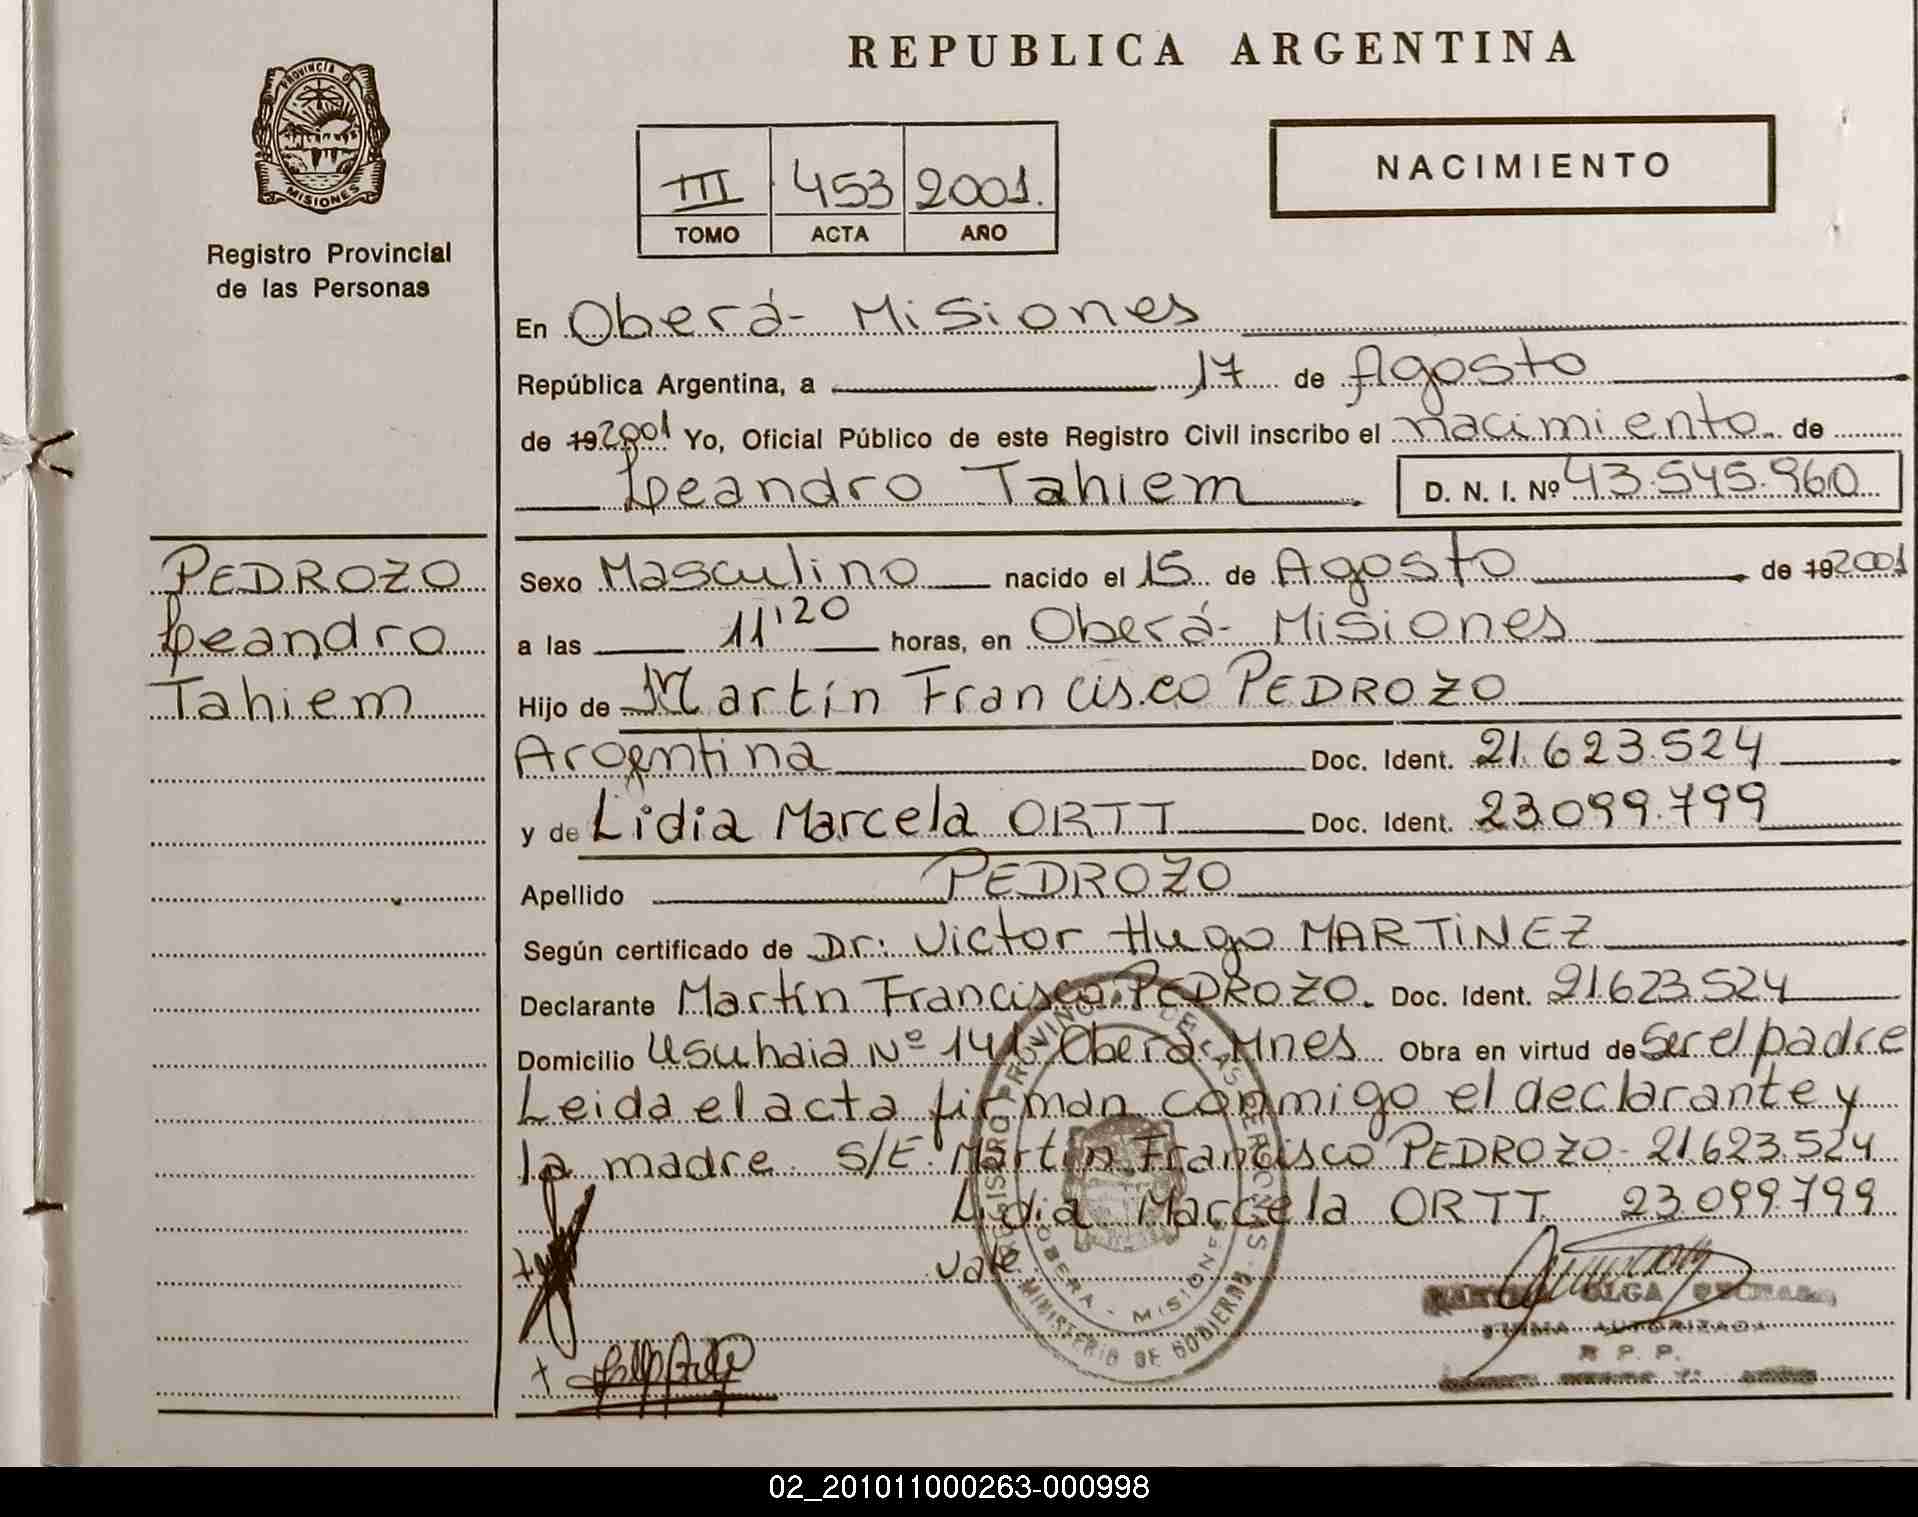 REPUBLICA ARGENTINA
PROVINCIA DE
MISIONES
Registro Provincial
de las Personas
NACIMIENTO
III 453 2001.
TOMO ACTA AÑO
En Oberá- Misiones
República Argentina, a 17 de Agosto
de 19 2001 Yo, Oficial Público de este Registro Civil inscribo el nacimiento de
Leandro Tahiem D. N. I. Nº 43.545.960
PEDROZO
Leandro
Tahiem
Sexo Masculino nacido el 15 de Agosto de 19 2001
a las 11'20 horas, en Oberá- Misiones
Hijo de Martín Francisco PEDROZO
Argentina Doc. Ident. 21.623.524
y de Lidia Marcela ORTT Doc. Ident. 23.099.799
Apellido PEDROZO
Según certificado de Dr: Victor Hugo MARTINEZ
Declarante Martín Francisco PEDROZO. Doc. Ident. 21.623.524
Domicilio Usuhaia Nº 141 Oberá-Mnes Obra en virtud de Ser el padre
Leida el acta firman conmigo el declarante y
la madre. S/E. Martín Francisco PEDROZO- 21.623.524
Lidia Marcela ORTT 23.099.799
vale.
REGISTRO PROVINCIAL DE LAS PERSONAS
OBERA - MISIONES
MINISTERIO DE GOBIERNO
OLGA
FIRMA AUTORIZADA
R P. P.
02_201011000263-000998